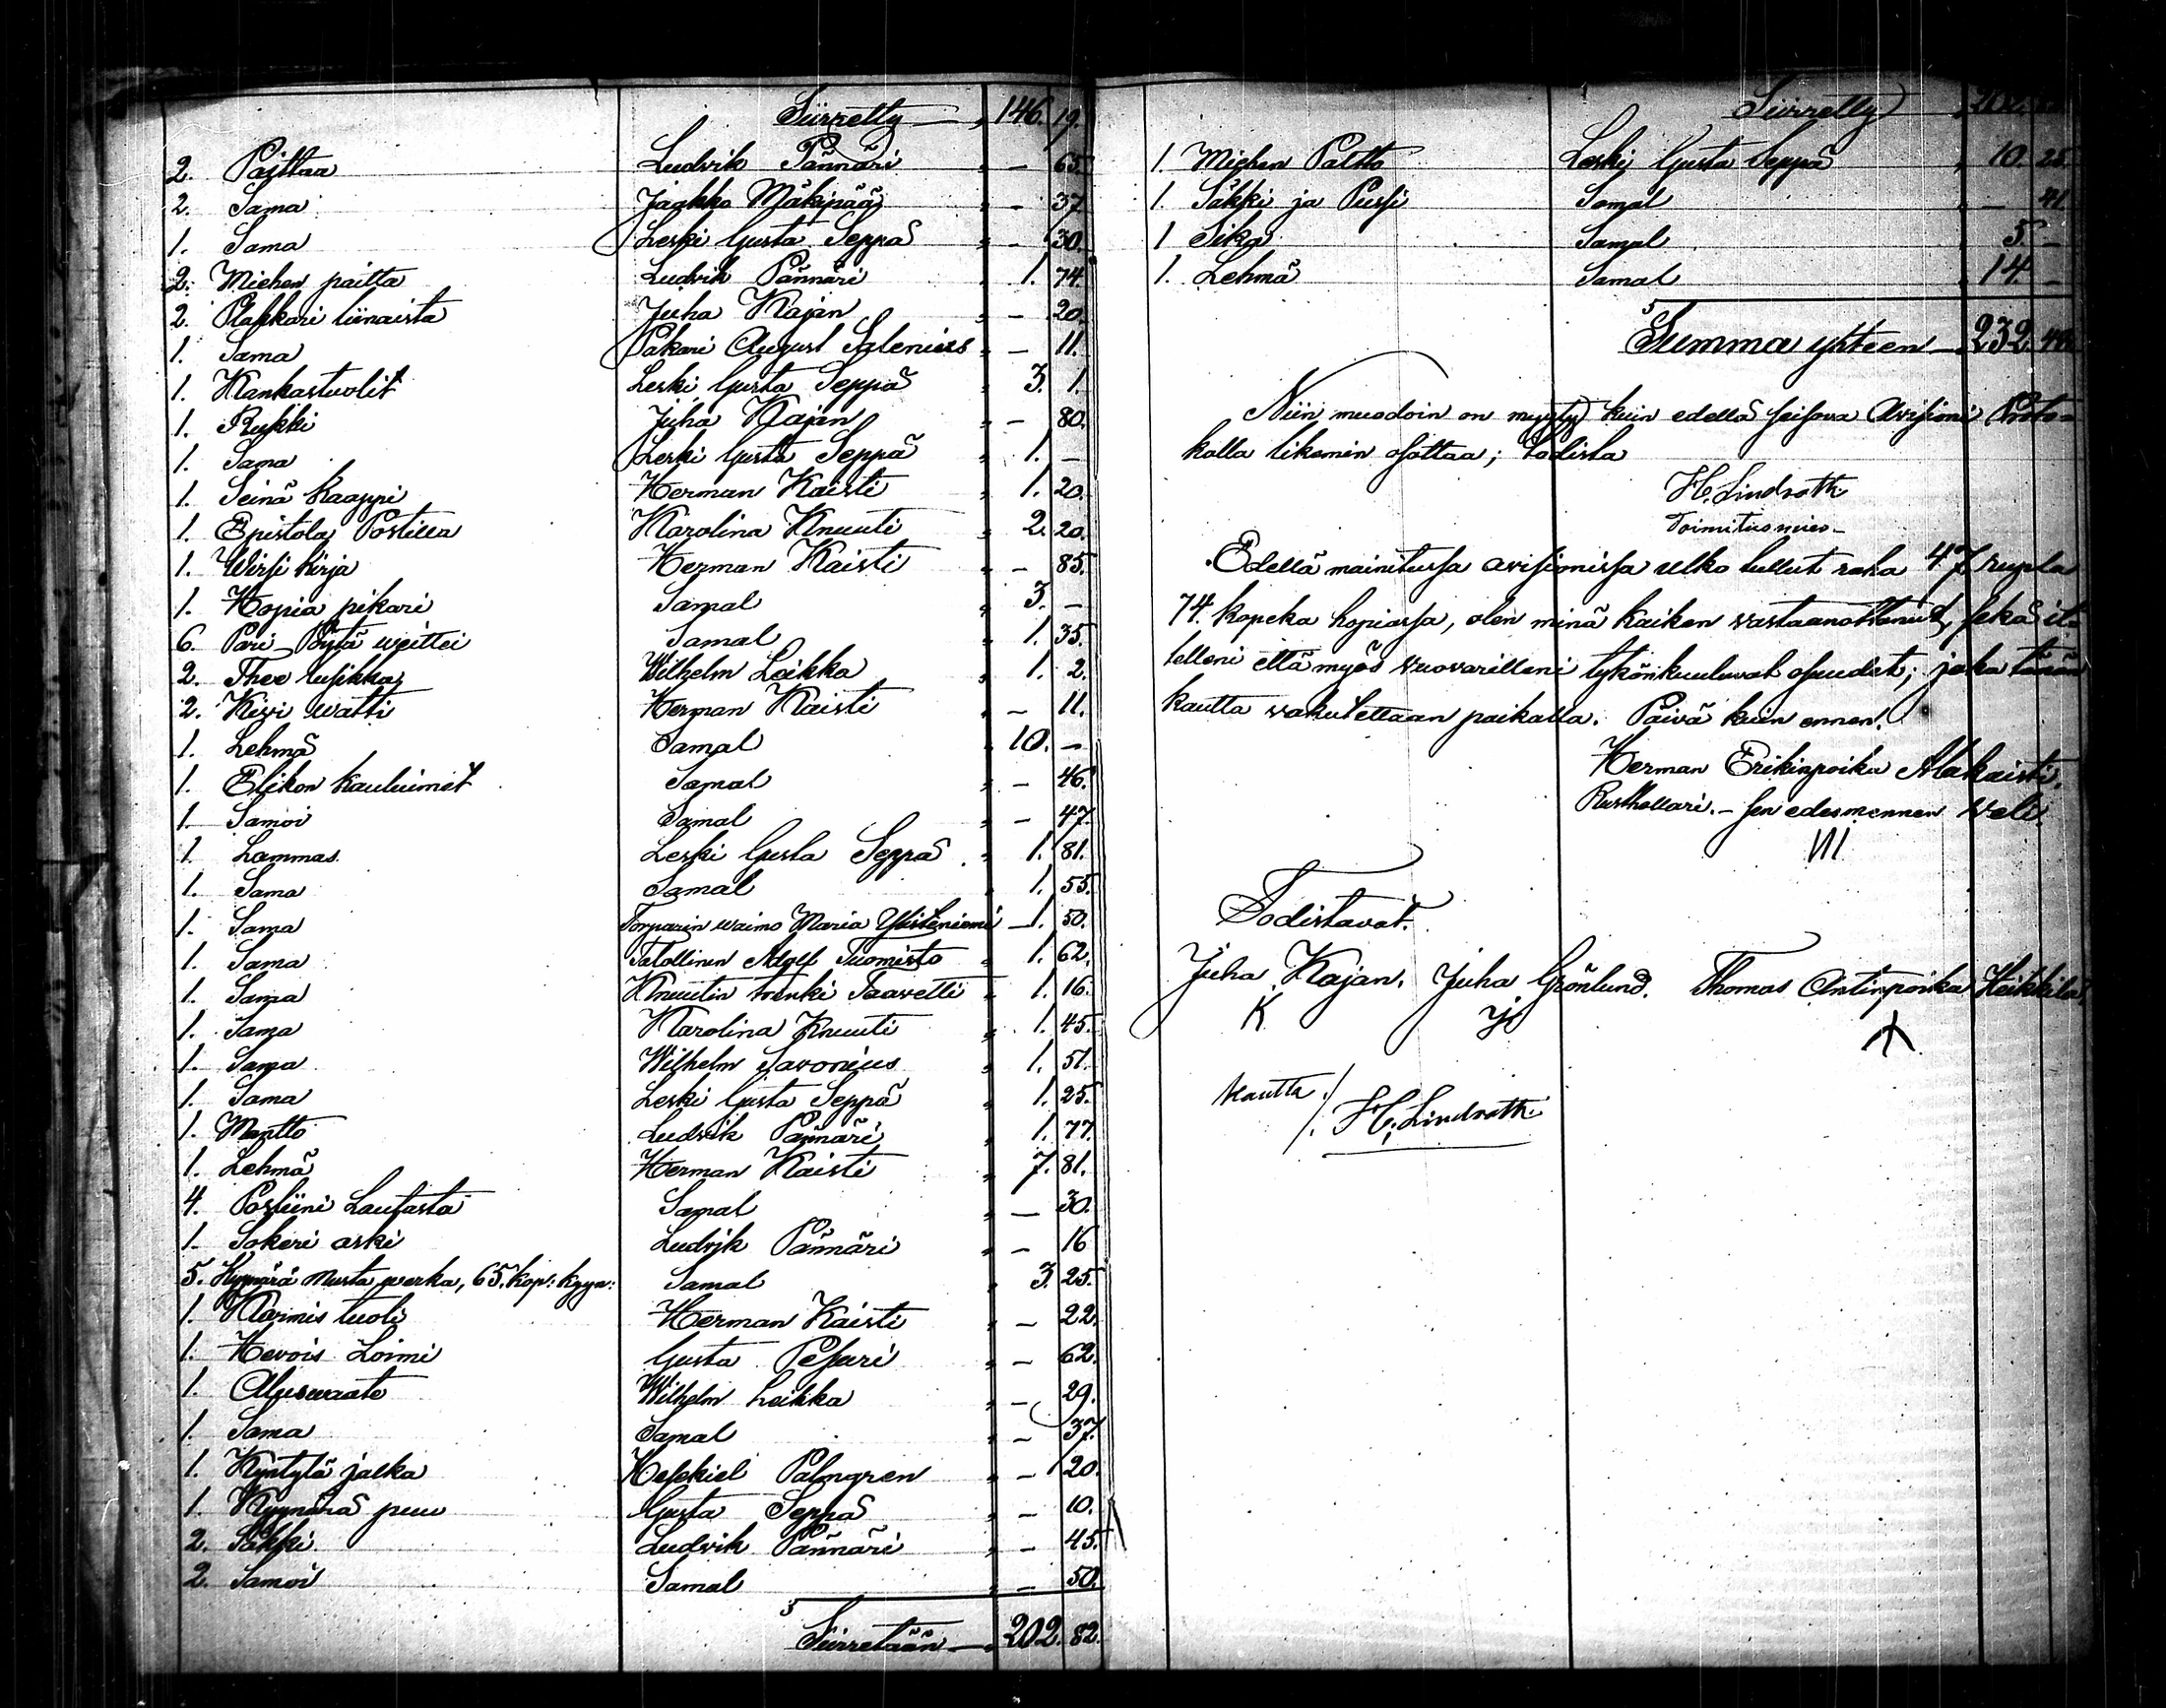 Siirretty 146. 19.
2. Paittaa Ludvik Pännäri " — 65.
2. Sama Jaakko Mäkipää " — 37.
1. Sama Leski Gusta Seppä " — 30.
2. Miehen paitta Ludvik Pännäri " 1. 74.
2. Plakkari liinaista Juha Kajan " — 20.
1. Sama Pakari August Salenius " — 11.
1. Kankastuolit Leski Gusta Seppä " 3. 1.
1. Rukki Juha Kajan " — 80.
1. Sama Leski Gusta Seppä " 1. —
1. Seinä Kaappi Herman Kaisti " 1. 20.
1. Epistola Postilla Karolina Knuuti " 2. 20.
1. Wirsi Kirja Herman Kaisti " — 85.
1. Hopia pikari Samal " 3. —
6. Pari Pöytä weittei Samal " 1. 35.
2. Thee lusikka Wilhelm Laikka " 1. 2.
2. Kivi watti Herman Kaisti " — 11.
1. Lehmä Samal " 10. —
1. Elikon kauluimet Samal " — 46.
1. Samoi Samal " — 47.
1. Lammas Leski Gusta Seppä " 1. 81.
1. Sama Samal 1. 55.
1. Sama Torparin waimo Maria Yhisteniemi — 1. 50.
1. Sama Talollinen Adolf Tuomisto " 1. 62.
1. Sama Knuutin trenki Taavetti " 1. 16.
1. Sama Karolina Knuuti " 1. 45.
1. Sama Wilhelm Savonius " 1. 51.
1. Sama Leski Gusta Seppä " 1. 25.
1. Mantto Ludvik Pännäri " 1. 77.
1. Lehmä Herman Kaisti " 7. 81.
4. Posliini Lautasta Samal " — 30.
1. Sokeri aski Ludvik Pännäri " — 16
5. Kynärä Musta werka, 65. kop: kyyn: Samal " 3. 25.
1. Karmis tuoli Herman Kaisti " — 22.
1. Hevois Loimi Gusta Pesuri " — 62.
1. Aluswaate Wilhelm Laikka " — 29.
1. Sama Samal " — 37.
1. Kyntylä jalka Hesekiel Palmgren " — 20.
1. Kyynärä puu Gusta Seppä " — 10.
2. Säkki Ludvik Pännäri " — 45.
2. Samoi Samal " — 50.
Siirretään 202. 82.
Siirretty 202.
1. Miehen Paltto Leski Gusta Seppä " 10. 25.
1. Säkki ja Pussi Samal " — 41.
1 Sika Samal " 5. —
1. Lehmä Samal " 14. —
Summa yhteen 232
Niin muodoin on myyty kuin edellä seisova Avisioni Proto-
kolla likemin osottaa; todista
H. Lindroth
Toimitusmies
Edellä mainitussa avisionissa ulko tullut raha 47 rupla
74. kopeka hopiassa, olen minä kaiken vastaanottanut, sekä it-
telleni että myös vuovarilleni tykönkuuluvat osuudet; joka tämän
kautta vakutettaan paikalla. Päivä kuin ennen.
Herman Erikinpoika Alakaisti.
Rusthollari. — sen edesmennen veli.
Todistavat.
Juha Kajan. Juha Grönlund. Thomas Antinpoika Heikkilä
K
Kautta
H. Lindroth